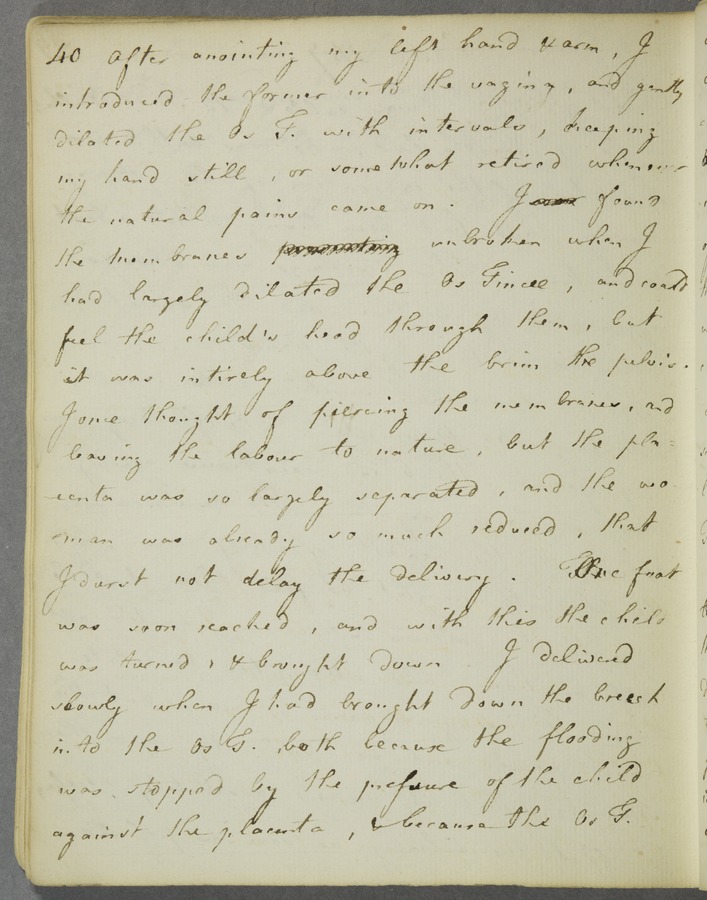 40 After anointing my left hand & arm, I
introduced the former into the vagina, and gently
dilated the Os T. with intervals, keeping
my hand still, or somewhat retired whenever
the natural pains came on. I found
the membranes unbroken when I
had largely dilated the Os Tincæ, and could
feel the child's head through them, but
it was intirely above the brim the pelvis.
I once thought of piercing the membranes, and
leaving the labour to nature, but the pla=
centa was so largely separated, and the wo
-man was already so much reduced, that
I durst not delay the delivery. One foot
was soon reached, and with this the child
was turned, & brought down I delivered
slowly when I had brought down the breech
into the Os T. both because the flooding
was stopped by the pressure of the child
against the placenta, & because the Os T.